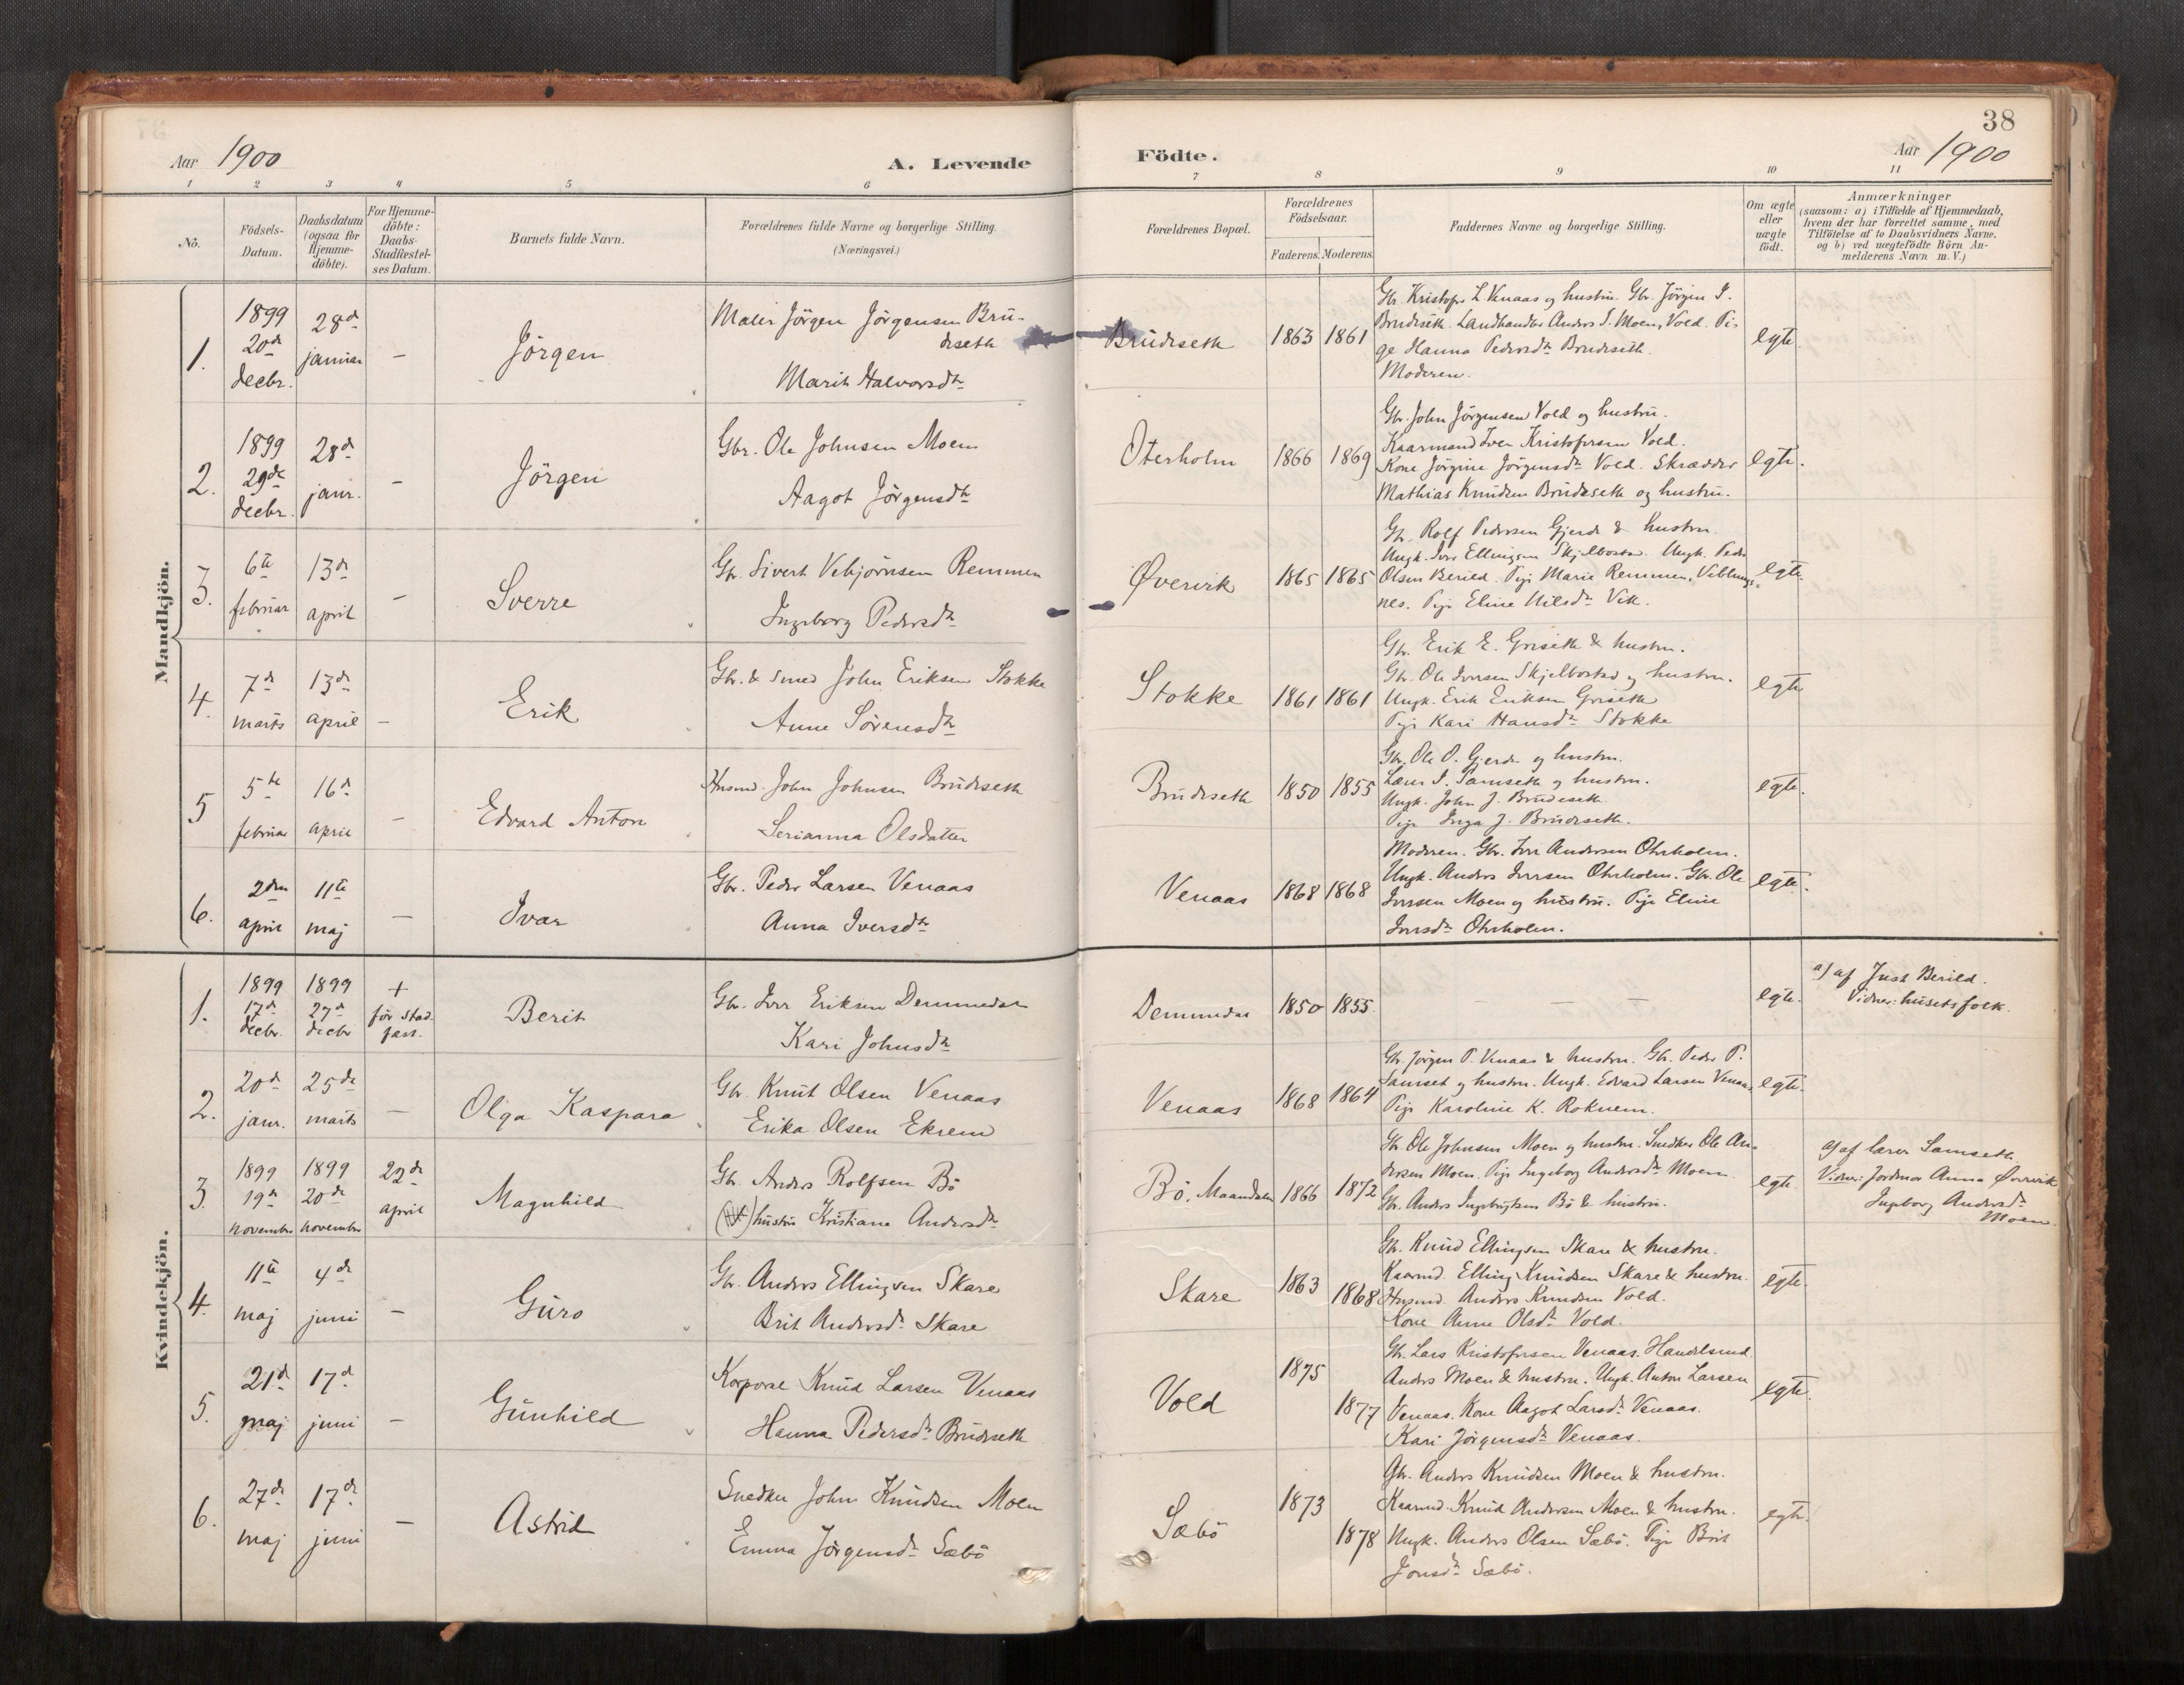 38
Aar 1900
A. Levende
Födte.
Aar 1900
1 2 3 4 5 6 7 8 9 10 11
Nô.
Födsels-Datum.
Daabsdatum (ogsaa for Hjemme-döbte).
For Hjemme-döbte: Daabs-Stadfæstel-ses Datum.
Barnets fulde Navn.
Forældrenes fulde Navne og borgerlige Stilling.
(Næringsvei.)
Forældrenes Bopæl.
Forældrenes Födselsaar.
Faderens. Moderens.
Faddernes Navne og borgerlige Stilling.
Om ægte eller uægte födt.
Anmærkninger
(saasom: a) i Tilfælde af Hjemmedaab,
hvem der har forrettet samme, med
Tilföielse af to Daabsvidners Navne,
og b) ved uægtefödte Börn An-
melderens Navn m. V.)
Mandkjön.
1.
1899 20de decbr.
28d januar
–
Jörgen
Maler Jörgen Jörgensen Brü-
deseth
Marit Halvorsdtr
Brüdeseth
1863 1861
Gbr. Kristofer L. Venaas og hustru. Gbr. Jörgen J.
Brudeseth. Landhandler Anders I. Moen, Vold. Pi-
ge Hanna Pedersdtr Brudeseth.
Moderen.
egte.
2.
1899 29de decbr.
28d janr.
–
Jörgen
Gbr. Ole Johnsen Moen
Aagot Jörgensdtr
Oterholm
1866 1869
Gbr. John Jörgensen Vold og hustru.
Kaarmand Iver Kristofersen Vold.
Kone Jörgine Jörgensdtr Vold. Skrædder
Mathias Knudsen Brüdeseth og hustru.
egte.
3.
6te februar
13d april
–
Sverre
Gbr. Sivert Vebjørnsen Remmen
Ingeborg Pedersdtr
Øvervik
1865 1865
Gbr. Rolf Pedersen Gjerde & hustru
Ungk. Iver Ellingsen Skjelbostad. Ungk. Peder
Olsen Berild. Pige Marie Remmen, Veblungs-
nes. Pige Eline Nilsdtr Vik.
egte.
4.
7de marts
13de april
–
Erik
Gbr. & smed John Eriksen Stokke
Anne Sörensdtr
Stokke
1861 1861
Gbr. Erik E. Griseth & hustru.
Gbr. Ole Iversen Skjelbostad og hustru.
Ungk. Erik Eriksen Griseth
Pige Kari Hansdtr Stokke
egte
5
5te februar
16d april
–
Edvard Anton
Husmd. John Johnsen Brüdeseth
Serianna Olsdatter
Brüdeseth
1850 1855
Gbr. Ole O. Gjerde og hustru.
Lærer I. Samseth og hustru.
Ungk. John J. Brudeseth.
Pige Inga J. Brüdeseth.
egte.
6.
2den april
11te maj
–
Ivar
Gbr. Peder Larsen Venaas
Anna Iversdtr
Venaas
1868 1868
Moderen. Gbr. Iver Andersen Ohrholm.
Ungk. Anders Iversen Ohrholm. Gbr. Ole
Iversen Moen og hustru. Pige Eline
Iversdtr Ohrholm.
egte.
Kvindekjön.
1.
1899 17d decbr.
1899 27d decbr
+ för stad-fæst.
Berit
Gbr. Iver Eriksen Demmedal
Kari Johnsdtr
Demmedal
1850 1855.
– – –
egte.
a) af Just Berild.
Vidner: husetsfolk.
2.
20d janr.
25de marts
–
Olga Kaspara
Gbr. Knut Olsen Venaas
Erika Olsen Ekrem
Venaas
1868 1864
Gbr. Jörgen P. Venaas & hustru. Gbr. Peder P.
Samset og hustru. Ungk. Edvard Larsen Venaas
Pige Karoline K. Roknem.
egte.
3.
1899 19d november
1899 20de november
22de april
Magnhild
Gbr. Anders Rolfsen Bö
hustru Kristiane Andersdtr
Bö, Maandalen
1866 1872
Gbr. Ole Johnsen Moen og hustru. Snedker Ole An-
dersen Moen. Pige Ingeborg Andersdtr Moen.
Gbr. Anders Ingebrigtsen Bö & hustru.
egte.
a) af lærer Samseth.
Vidner: Jordmor Anna Øvervik
Ingeborg Andersdtr
Moen.
4.
11te maj
4de juni
–
Güro
Gbr. Anders Ellingsen Skare
Brit Andersdtr Skare
Skare
1863 1868
Gbr. Knüd Ellingsen Skare & hustru.
Kaarmd. Elling Knüdsen Skare & hustru.
Husmd. Anders Knudsen Vold.
Kone Anne Olsdtr Vold.
egte.
5.
21d maj
17d juni
–
Günhild
Korporal Knud Larsen Venaas
Hanna Pedersdtr Brüdeseth
Vold
1875 1877
Gbr. Lars Kristofersen Venaas. Handelsmd.
Anders Moen & hustru. Ungk. Anton Larsen
Venaas. Kone Aagot Larsdtr Venaas.
Kari Jörgensdtr Venaas.
egte.
6.
27de maj
17de juni
–
Astrid
Snedker John Knüdsen Moen
Emma Jörgensdtr Sæbö
Sæbö
1873 1878
Gbr. Anders Knüdsen Moen & hustru.
Kaarmd. Knüd Andersen Moen & hustru.
Ungk. Anders Olsen Sæbö. Pige Brit
Jonsdtr Sæbö.
egte.